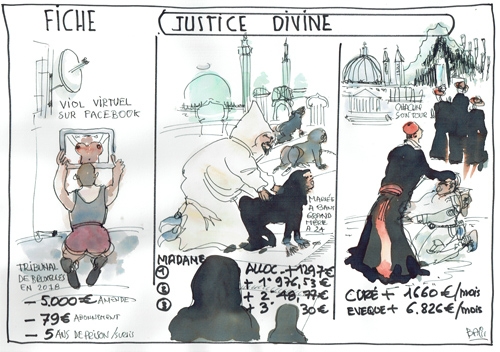 FICHE
JUSTICE DIVINE
VIOL VIRTUEL
SUR FACEBOOK
TRIBUNAL
DE BRUXELLES
EN 2018
- 5.000€ AMENDE
- 79€ ABONNEMENT
- 5 ANS DE PRISON/SURSIS
MARIÉE
A 9 ANS
GRAND
MÈRE
A 24
MADAME
1
2
3
ALLOC. + 1297€
+ 1° 976,53€
+ 2° 48,77€
+ 3° 30€
CHACUN
SON TOUR
CURÉ + 1660€/mois
EVEQUE + 6.826€/mois